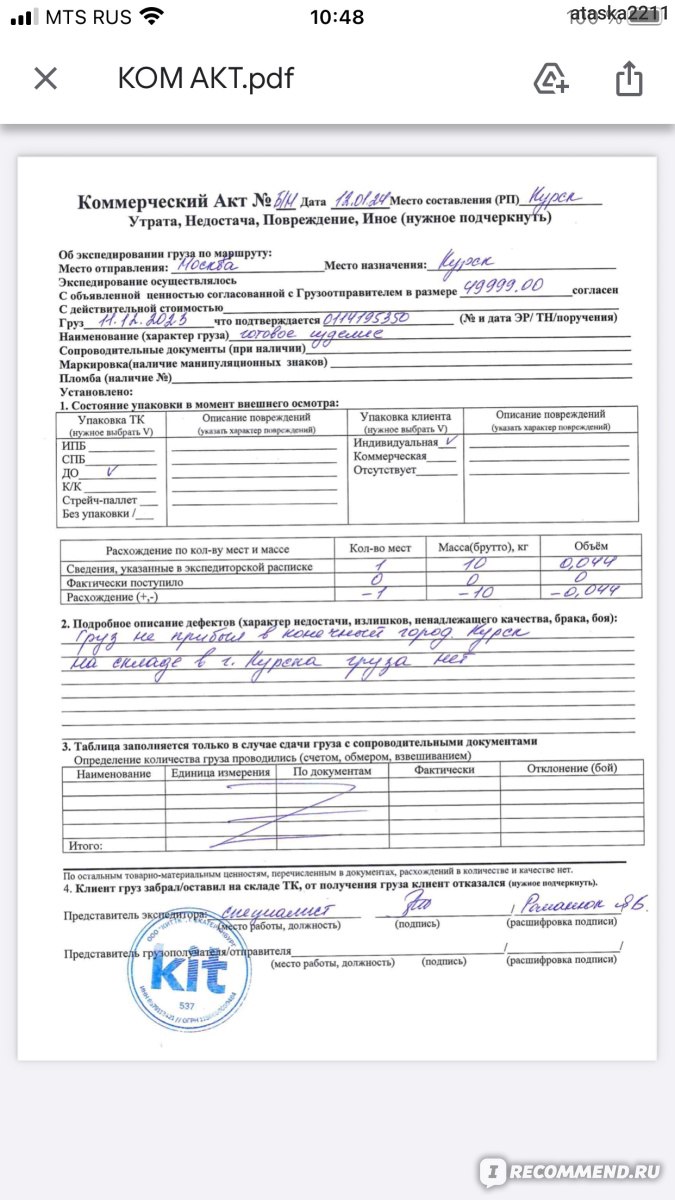 MTS RUS 10:48 ataska2211
КОМ АКТ.pdf
Коммерческий Акт № Б/Н Дата 12.01.24 Место составления (РП) Курск
Утрата, Недостача, Повреждение, Иное (нужное подчеркнуть)
Об экспедировании груза по маршруту:
Место отправления: Москва Место назначения: Курск
Экспедирование осуществлялось
С объявленной ценностью согласованной с Грузоотправителем в размере 49999,00 согласен
С действительной стоимостью
Груз 11.12.2023 что подтверждается 0114195350 (№ и дата ЭР/ ТН/поручения)
Наименование (характер груза) готовое изделие
Сопроводительные документы (при наличии)
Маркировка(наличие манипуляционных знаков)
Пломба (наличие №)
Установлено:
1. Состояние упаковки в момент внешнего осмотра:
Упаковка ТК Описание повреждений Упаковка клиента Описание повреждений
(нужное выбрать V) (указать характер повреждений) (нужное выбрать V) (указать характер повреждений)
ИПБ Индивидуальная V
СПБ Коммерческая
ДО V Отсутствует
К/К
Стрейч-паллет
Без упаковки /
Расхождение по кол-ву мест и массе Кол-во мест Масса(брутто), кг Объём
Сведения, указанные в экспедиторской расписке 1 10 0,044
Фактически поступило 0 0 0
Расхождение (+,-) -1 -10 -0,044
2. Подробное описание дефектов (характер недостачи, излишков, ненадлежащего качества, брака, боя):
Груз не прибыл в конечный город Курск
на складе в г. Курска груза нет
3. Таблица заполняется только в случае сдачи груза с сопроводительными документами
Определение количества груза проводились (счетом, обмером, взвешиванием)
Наименование Единица измерения По документам Фактически Отклонение (бой)
Итого:
По остальным товарно-материальным ценностям, перечисленным в документах, расхождений в количестве и качестве нет.
4. Клиент груз забрал/оставил на складе ТК, от получения груза клиент отказался (нужное подчеркнуть).
Представитель экспедитора: специалист / Романюк Я.В.
(место работы, должность) (подпись) (расшифровка подписи)
Представитель грузополучателя/отправителя / /
(место работы, должность) (подпись) (расшифровка подписи)
kit
537
IRECOMMEND.RU